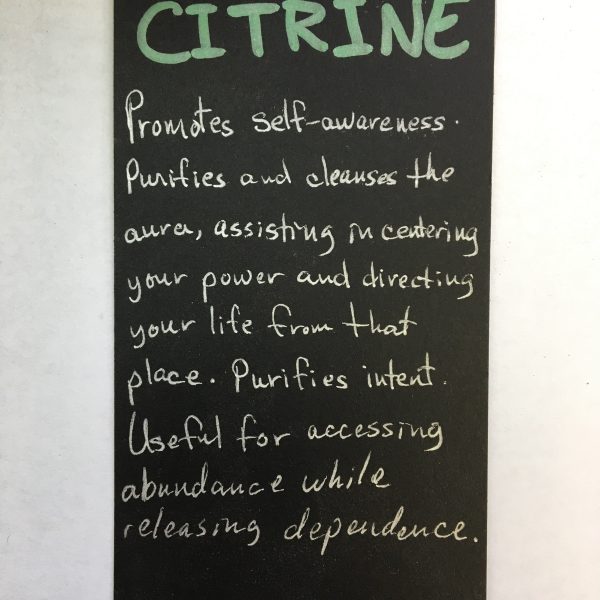 CITRINE
Promotes self-awareness.
Purifies and cleanses the
aura, assisting in centering
your power and directing
your life from that
place. Purifies intent.
Useful for accessing
abundance while
releasing dependence.